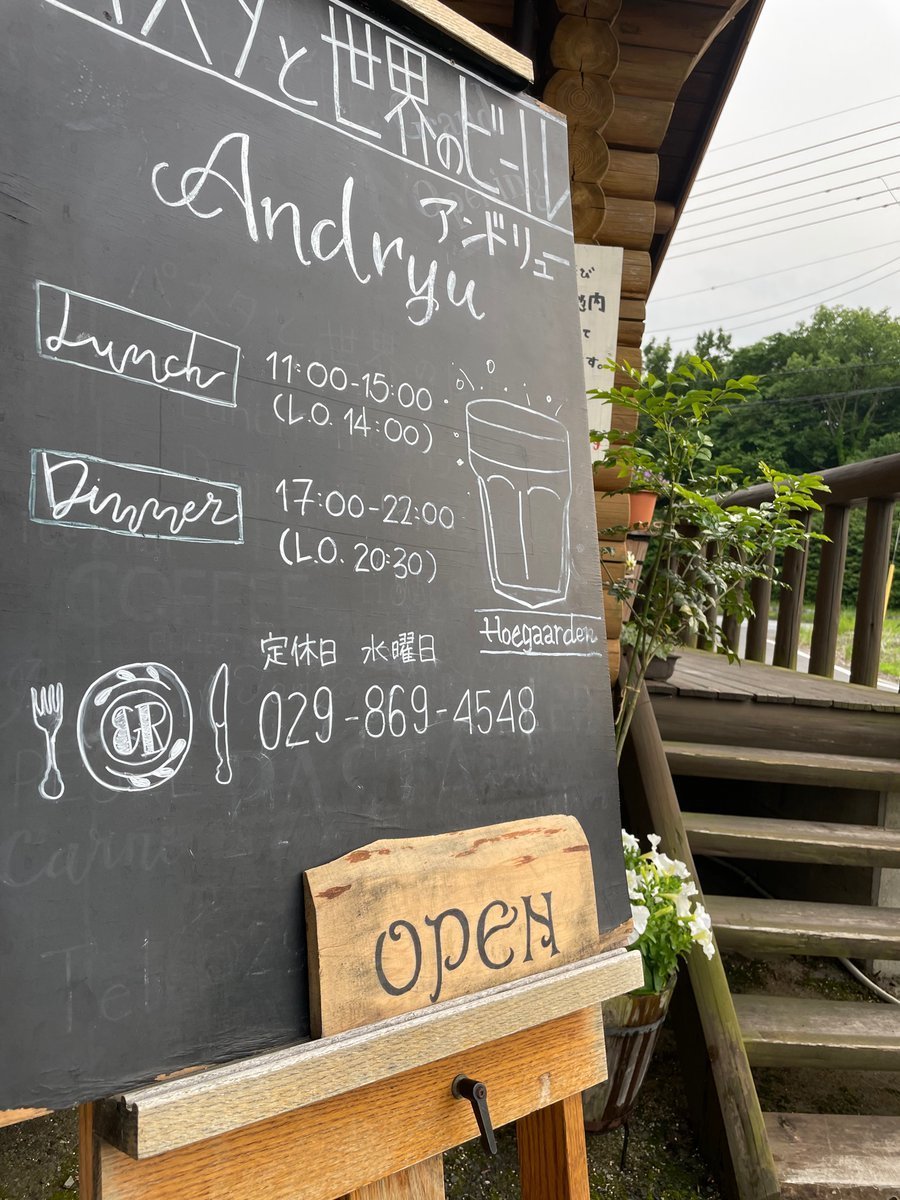 パスタと世界のビール
Andryu
アンドリュー
Lunch
11:00-15:00
(L.O. 14:00)
Dinner
17:00-22:00
(L.O. 20:30)
Hoegaarden
定休日 水曜日
029-869-4548
BR
OPEN